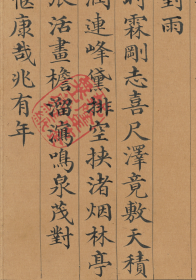 對雨
霖剛志喜尺澤竟敷天積
潤連峰黛排空挾渚烟林亭
活畫檐溜瀉鳴泉茂對
愜康哉兆有年